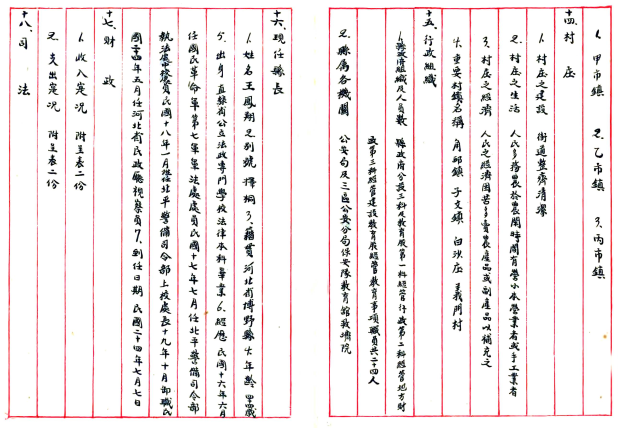 1、甲市鎮　2、乙市鎮　3、丙市鎮
十四、村莊
1、村庄之建設　街道整齊清潔
2、村庄之生活　人民多務農於農閒時間有營小本營業者或手工業者
3、村庄之經濟　人民之經濟困苦多賣農產品或副產品以補充之
4、重要村鎮名稱　角邱鎮　子文鎮　白沙庄　義門村
十五、行政組織
1、縣政府組織及人員數　縣政府分設三科及教育局第一科經管行政第二科經管地方財
政第三科經管建設教育局經管教育事項職員共二十四人
2、縣屬各機關　公安局及三區公安分局保安隊教育館救濟院
十六、現任縣長
1、姓名王鳳翔　2、別號　擇桐　3、籍貫　河北省博野縣　4、年齡　四四歲
5、出身　直隸省公立法政專門學校法律本科畢業　6、經歷　民國十六年六月
任國民革命軍第七軍軍法處處員民國十七年七月任北平警備司令部
執法處中校處員民國十八年一月任北平警備司令部上校處長十九年十月卸職民
國二十四年五月任河北省民政廳視察員　7、到任日期　民國二十四年七月七日
十七、財政
1、收入實況　附呈表二份
2、支出實況　附呈表二份
十八、司法